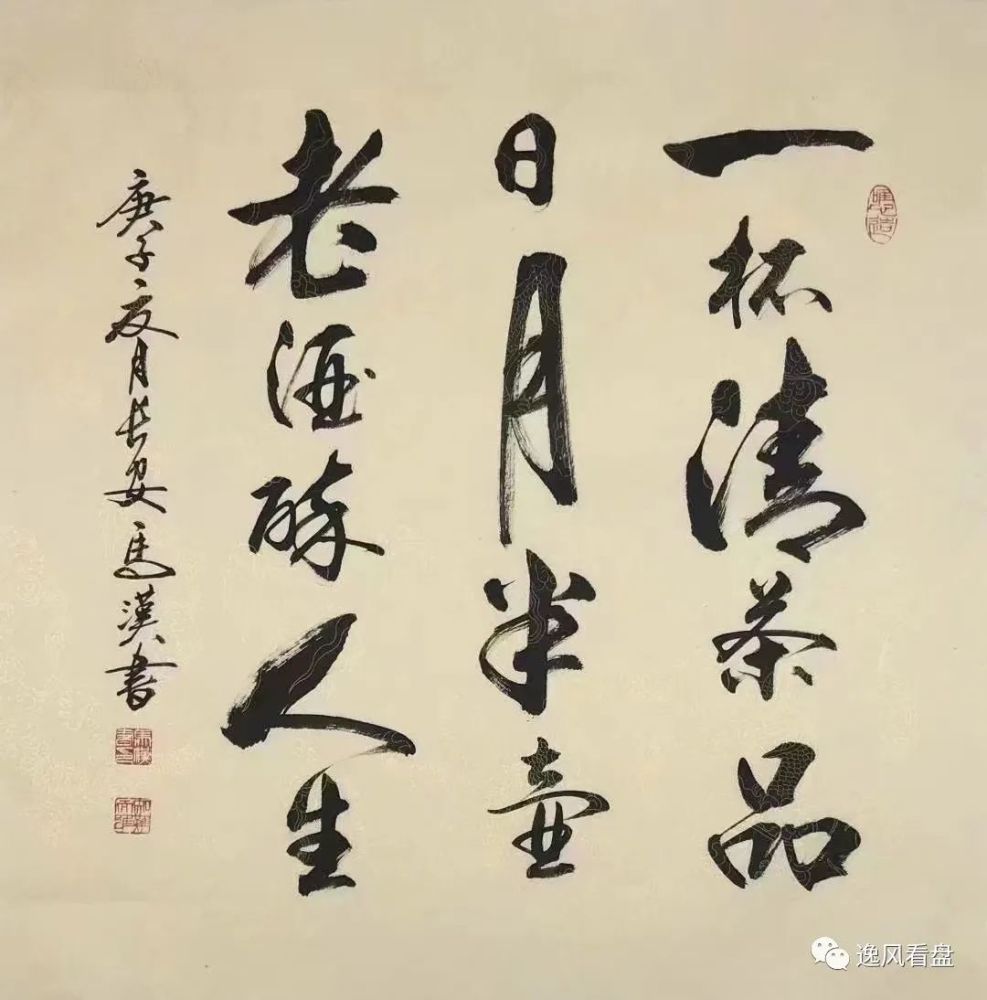 一杯清茶品
日月半壶
老酒醉人生
庚子夏月长安马漢書
逸风看盘